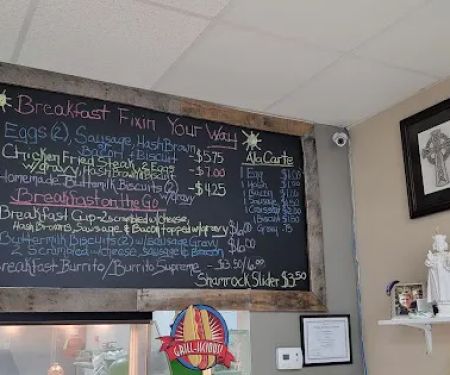 Breakfast Fixin Your Way
Eggs (2), Sausage, Hash Brown
Bacon, Biscuit -$5.75
Chicken Fried Steak 2 Eggs
w/Gravy, Hash Brown Biscuit -$7.00
Homemade Buttermilk Biscuits (2) w/gravy -$4.25
Breakfast on the Go
Breakfast Cup - 2 scrambled w/cheese,
Hash Browns, Sausage & Bacon topped w/gravy $6.00
Buttermilk Biscuits (2) w/Sausage Gravy $6.00
2 Scrambled w/cheese, Sausage & Bacon
Breakfast Burrito/Burrito Supreme -$3.50/6.00
Shamrock Slider $3.50
Ala Carte
1 Egg $1.00
1 Hash
1 Bacon
1 Sausage
1
1 Biscuit
Gravy .75
GRILL-ICIOUS!